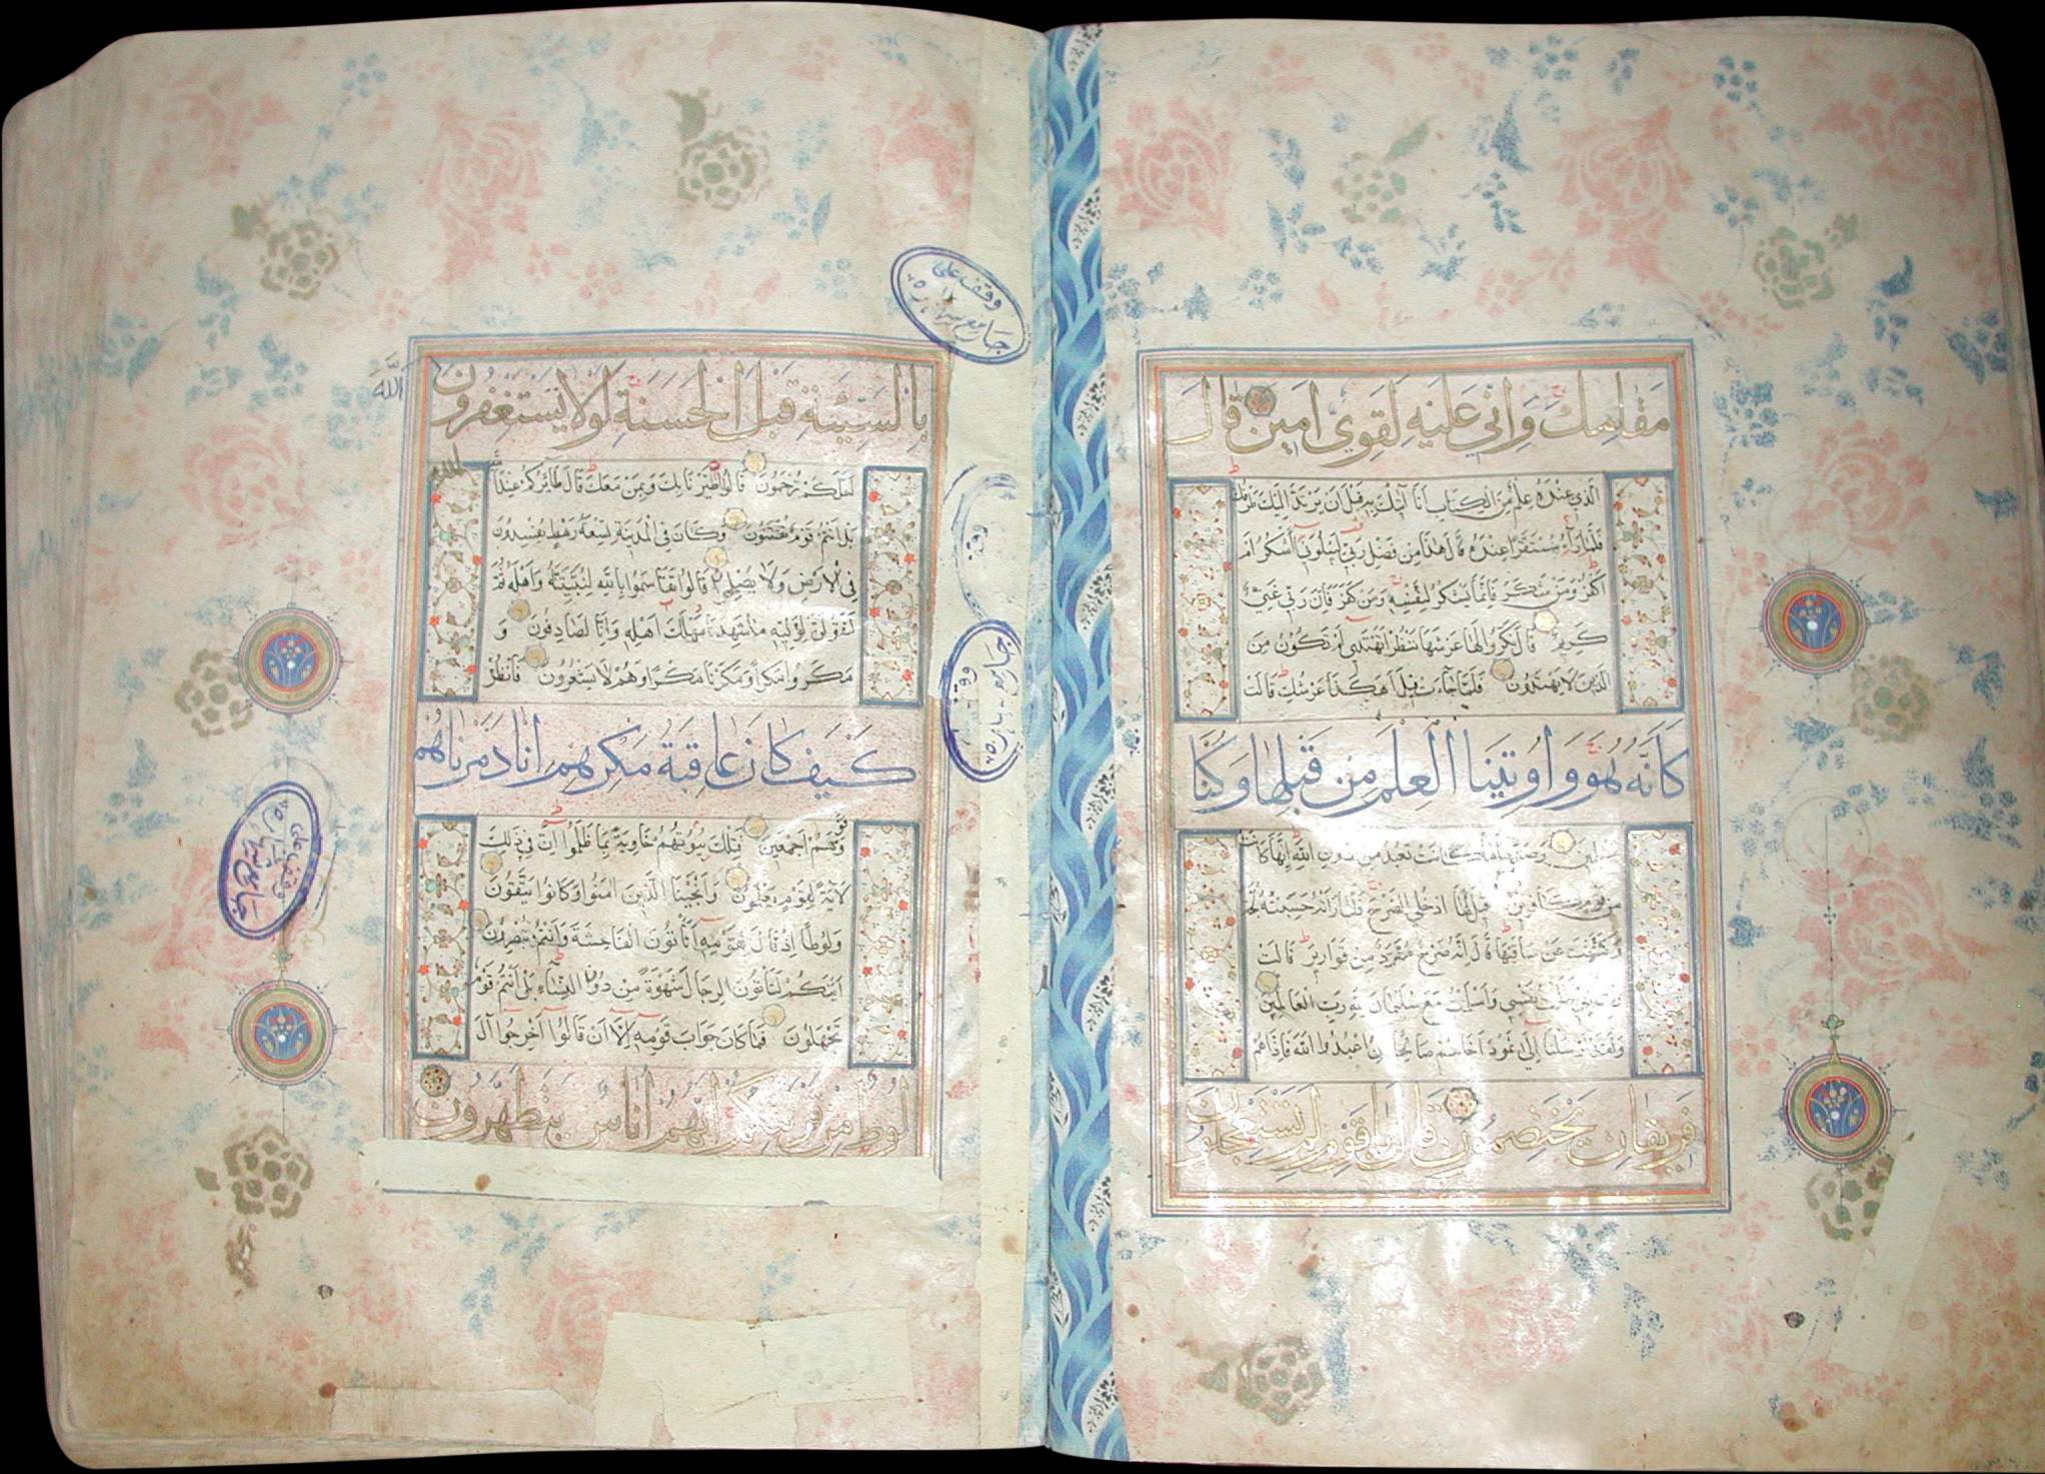 مَقَامِكَ وَاِنّي عَلَيْهِ لَقَوِيٌّ اَمينٌ قَالَ
الَّذي عِنْدَهُ عِلْمٌ مِنَ الْكِتَابِ اَنَا آتيكَ بِهِ قَبْلَ اَنْ يَرْتَدَّ اِلَيْكَ طَرْفُكَ
فَلَمَّا رَآهُ مُسْتَقِرًّا عِنْدَهُ قَالَ هٰذَا مِنْ فَضْلِ رَبّي لِيَبْلُوَني ءَاَشْكُرُ اَمْ
اَكْفُرُ وَمَنْ شَكَرَ فَاِنَّمَا يَشْكُرُ لِنَفْسِهِ وَمَنْ كَفَرَ فَاِنَّ رَبّي غَنِيٌّ
كَريمٌ قَالَ نَكِّرُوا لَهَا عَرْشَهَا نَنْظُرْ اَتَهْتَدي اَمْ تَكُونُ مِنَ
الَّذينَ لَا يَهْتَدُونَ فَلَمَّا جَاءَتْ قيلَ اَهٰكَذَا عَرْشُكِ قَالَتْ
كَاَنَّهُ هُوَ وَاُوتينَا الْعِلْمَ مِنْ قَبْلِهَا وَكُنَّا
مُسْلِمينَ وَصَدَّهَا مَا كَانَتْ تَعْبُدُ مِنْ دُونِ اللّٰهِ اِنَّهَا كَانَتْ
مِنْ قَوْمٍ كَافِرينَ قيلَ لَهَا ادْخُلِي الصَّرْحَ فَلَمَّا رَاَتْهُ حَسِبَتْهُ لُجَّةً
وَكَشَفَتْ عَنْ سَاقَيْهَا قَالَ اِنَّهُ صَرْحٌ مُمَرَّدٌ مِنْ قَوَاريرَ قَالَتْ
رَبِّ اِنّي ظَلَمْتُ نَفْسي وَاَسْلَمْتُ مَعَ سُلَيْمَانَ لِلّٰهِ رَبِّ الْعَالَمينَ
وَلَقَدْ اَرْسَلْنَا اِلٰى ثَمُودَ اَخَاهُمْ صَالِحًا اَنِ اعْبُدُوا اللّٰهَ فَاِذَا هُمْ
فَريقَانِ يَخْتَصِمُونَ قَالَ يَا قَوْمِ لِمَ تَسْتَعْجِلُونَ
بِالسَّيِّئَةِ قَبْلَ الْحَسَنَةِ لَوْلَا تَسْتَغْفِرُونَ
اللّٰهَ
لَعَلَّكُمْ تُرْحَمُونَ قَالُوا اطَّيَّرْنَا بِكَ وَبِمَنْ مَعَكَ قَالَ طَائِرُكُمْ عِنْدَ اللّٰهِ
بَلْ اَنْتُمْ قَوْمٌ تُفْتَنُونَ وَكَانَ فِي الْمَدينَةِ تِسْعَةُ رَهْطٍ يُفْسِدُونَ
فِي الْاَرْضِ وَلَا يُصْلِحُونَ قَالُوا تَقَاسَمُوا بِاللّٰهِ لَنُبَيِّتَنَّهُ وَاَهْلَهُ ثُمَّ
لَنَقُولَنَّ لِوَلِيِّهِ مَا شَهِدْنَا مَهْلِكَ اَهْلِهِ وَاِنَّا لَصَادِقُونَ وَ
مَكَرُوا مَكْرًا وَمَكَرْنَا مَكْرًا وَهُمْ لَا يَشْعُرُونَ فَانْظُرْ
كَيْفَ كَانَ عَاقِبَةُ مَكْرِهِمْ اَنَّا دَمَّرْنَاهُمْ
وَقَوْمَهُمْ اَجْمَعينَ فَتِلْكَ بُيُوتُهُمْ خَاوِيَةً بِمَا ظَلَمُوا اِنَّ في ذٰلِكَ
لَآيَةً لِقَوْمٍ يَعْلَمُونَ وَاَنْجَيْنَا الَّذينَ اٰمَنُوا وَكَانُوا يَتَّقُونَ
وَلُوطًا اِذْ قَالَ لِقَوْمِهِ اَتَأْتُونَ الْفَاحِشَةَ وَاَنْتُمْ تُبْصِرُونَ
اَئِنَّكُمْ لَتَأْتُونَ الرِّجَالَ شَهْوَةً مِنْ دُونِ النِّسَاءِ بَلْ اَنْتُمْ قَوْمٌ
تَجْهَلُونَ فَمَا كَانَ جَوَابَ قَوْمِهِ اِلَّا اَنْ قَالُوا اَخْرِجُوا اٰلَ
لُوطٍ مِنْ قَرْيَتِكُمْ اِنَّهُمْ اُنَاسٌ يَتَطَهَّرُونَ
وقف على
جامع
وقف
جامع
وقف على
جامع